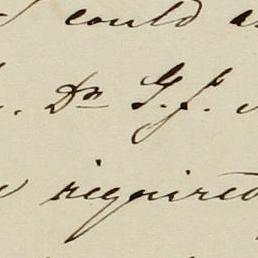 could
Dr G. f.
required